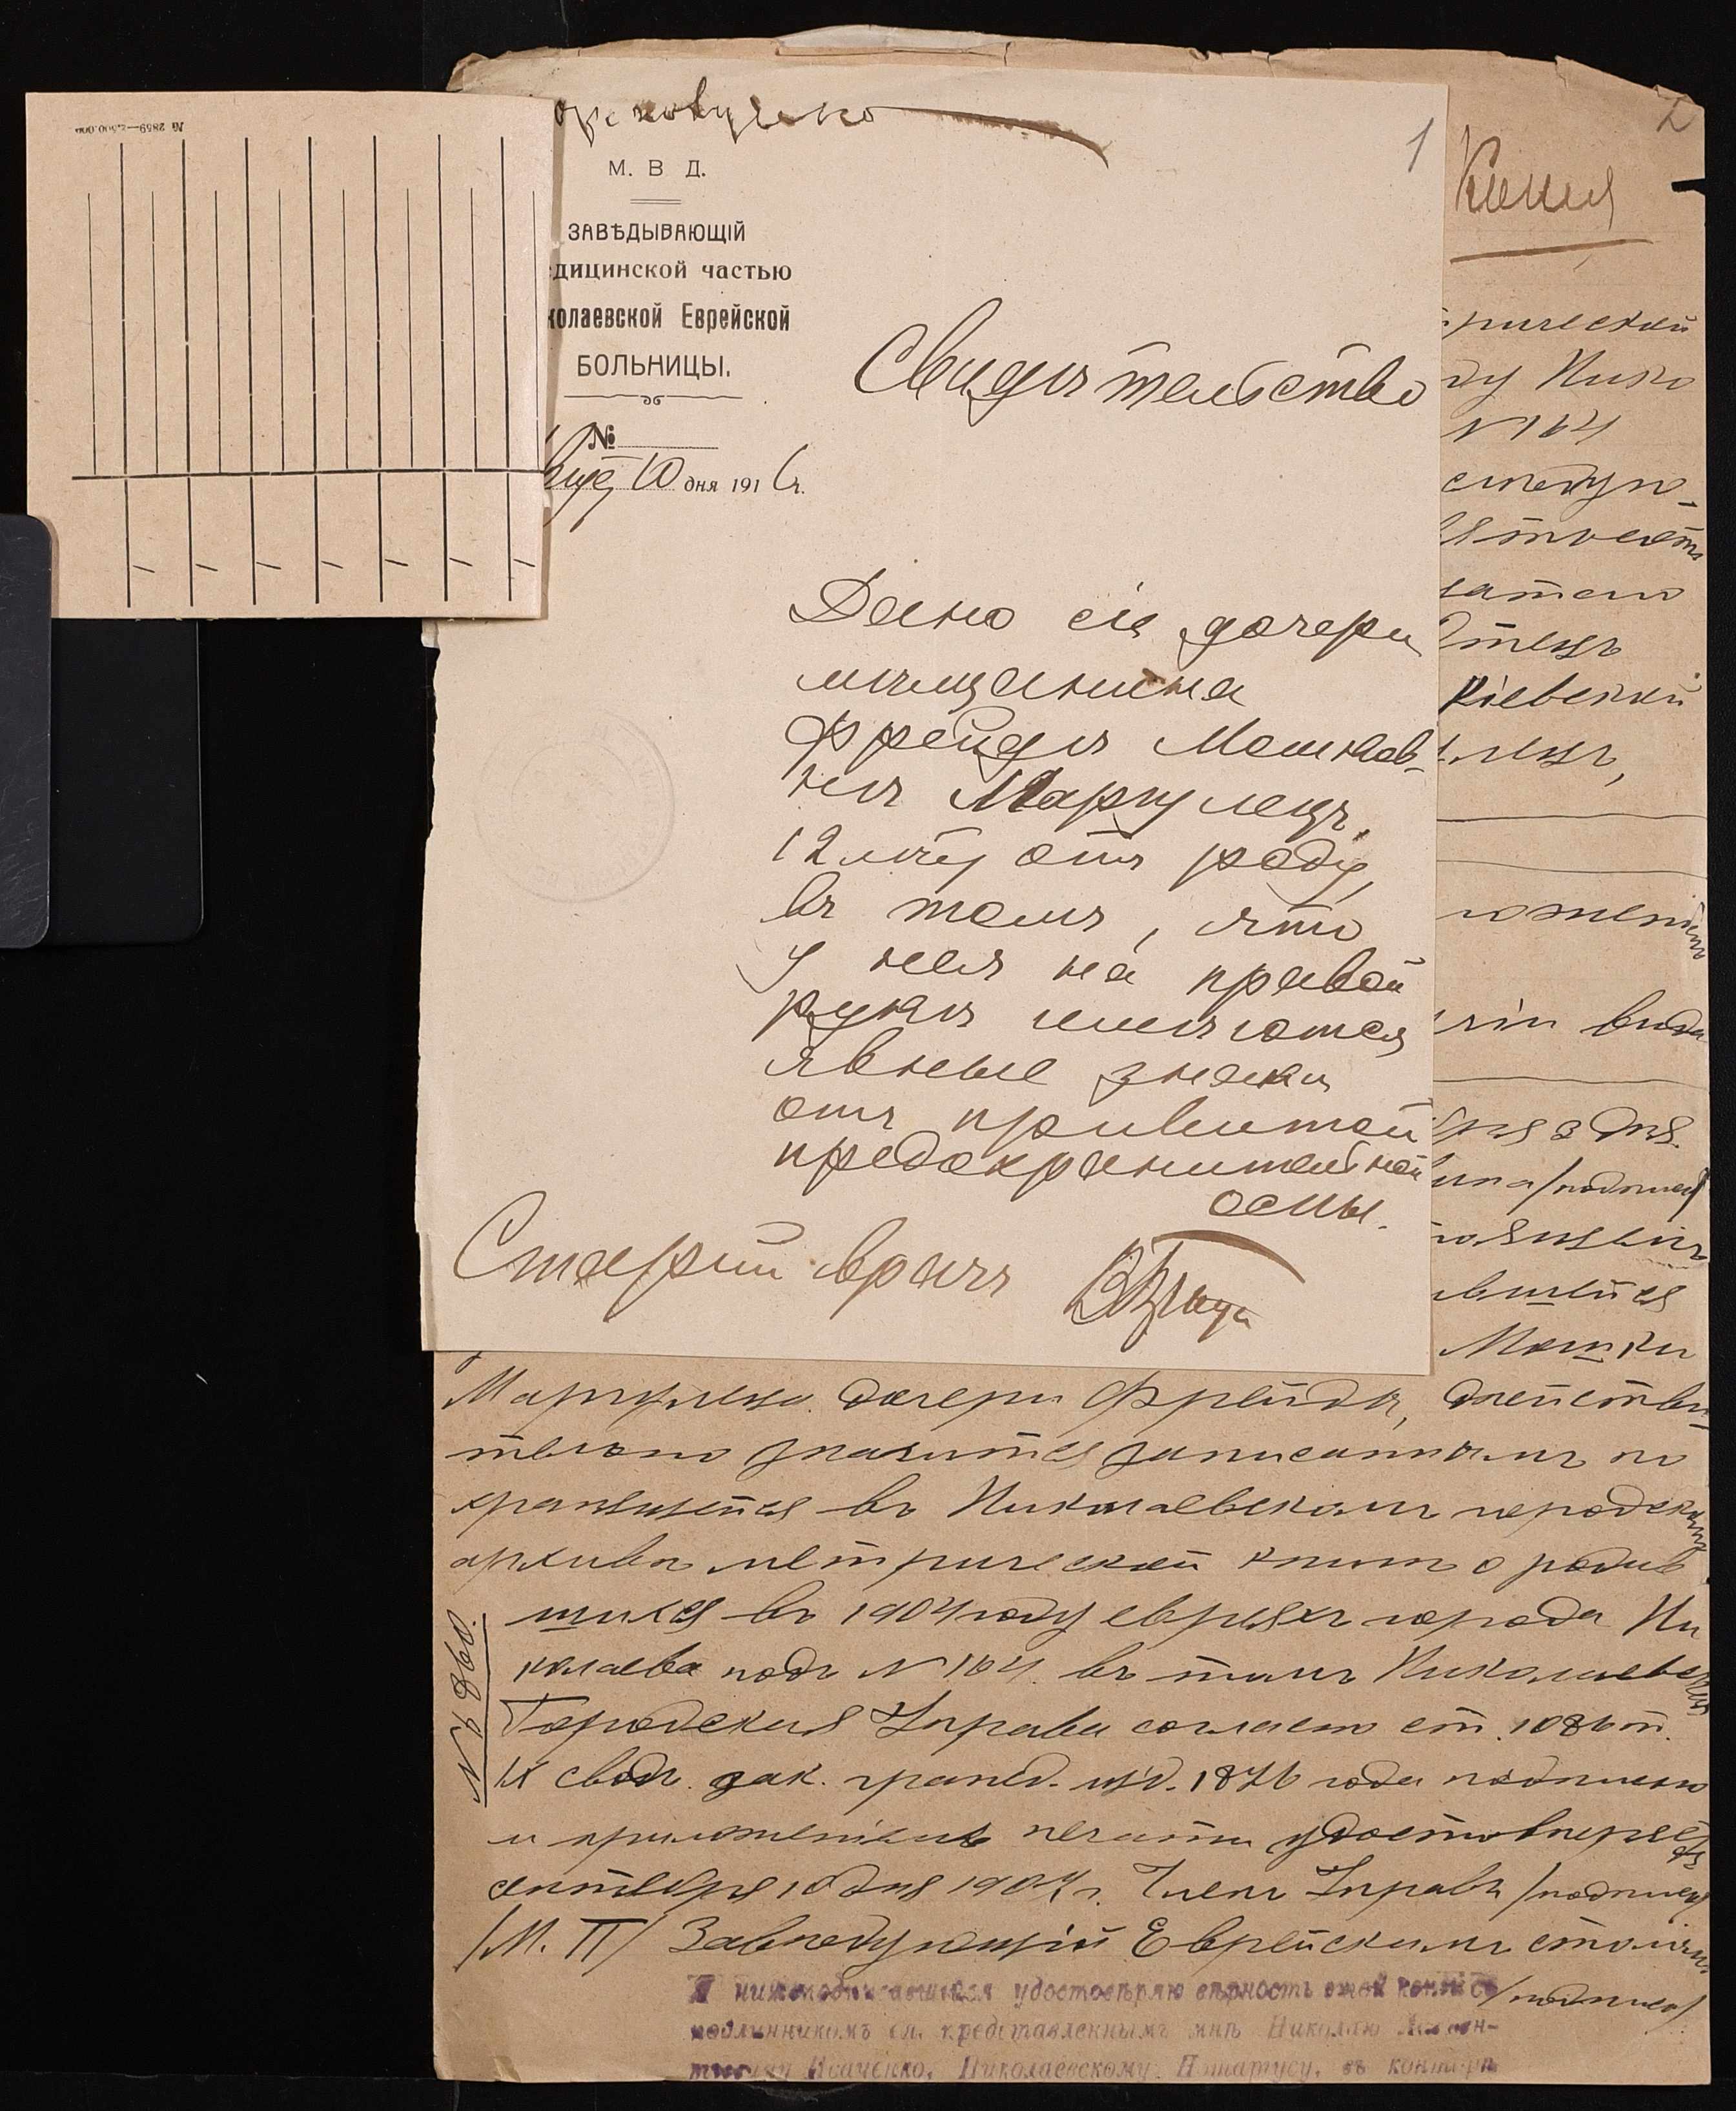 № 2859—2.500.000
М. В Д.
ЗАВѢДЫВАЮЩІЙ
дицинской частью
колаевской Еврейской
БОЛЬНИЦЫ.
№
10 дня 1916 г.
1
Свидѣтельство
Дано сіе дочери
мѣщанина
Фрейдѣ Мошков-
нѣ Маргулецъ,
12 лѣтъ отъ роду,
въ томъ, что
у нея на правой
рукѣ имѣются
явные знаки
отъ привитой
предохранительной
оспы.
Старшій врачъ
2
Копія
рической
ду Нико
№ 164
слѣдую-
Отецъ
Кіевской
лецъ,
ложенъ
вида
3 дня.
/подпись/
вшейся
Мошки
Маргулецъ дочери Фрейда, дѣйстви-
тельно значится записаннымъ по
хранящейся въ Николаевскомъ городском
архивѣ метрической книгѣ о родив
шихся въ 1904 году евреяхъ города Ни
колаева подъ № 164. въ томъ Николаевская
Городская Управа согласно ст. 1086 т.
IX свод. зак. гражд. изд. 1876 года подписью
и приложеніемъ печати удостовѣряетъ
сентября 10 дня 1904 г. Членъ Управы /подпись/
/М. П/ Завѣдующій Еврейскимъ столомъ
/подпись/
№ 6860.
Я нижеподписавшійся удостовѣряю вѣрность этой копіи съ
подлинникомъ ея, представленнымъ мнѣ Николаю Леон-
тьевичу Исаченко, Николаевскому Нотаріусу, въ конторѣ